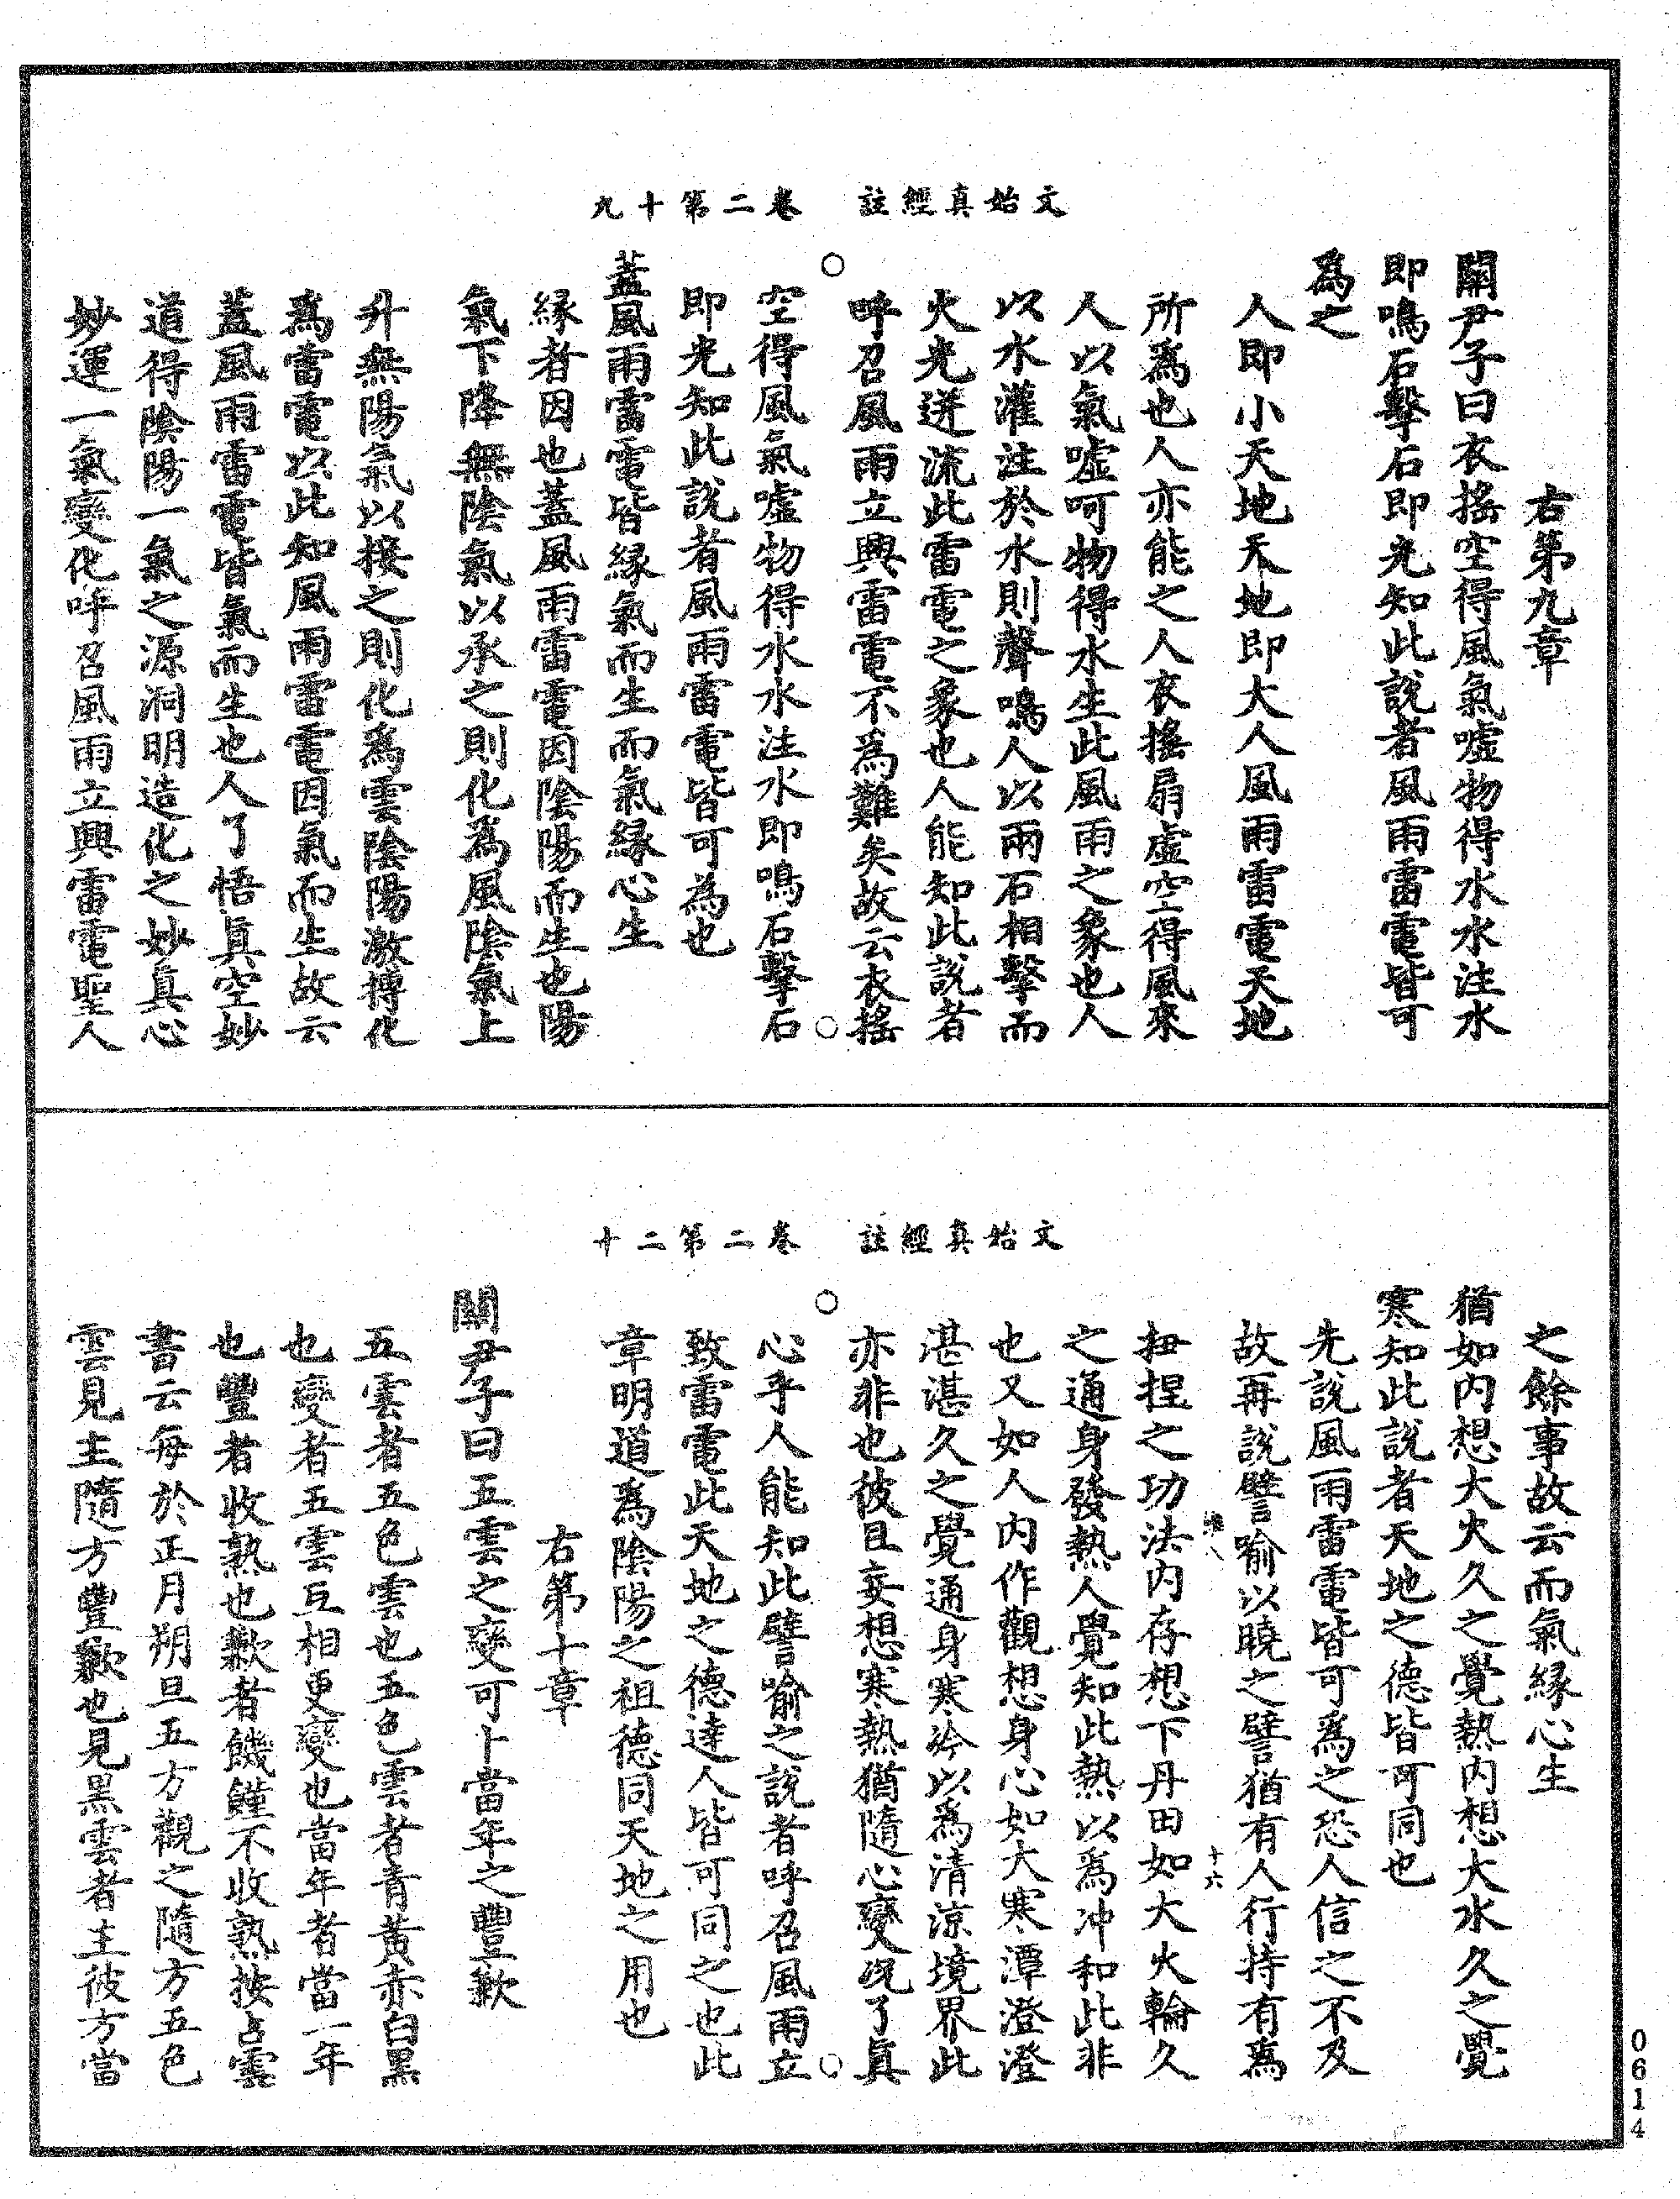 文始真經註　卷二第十九
右第九章
關尹子曰衣搖空得風氣噓物得水水注水
即鳴石擊石即光知此說者風雨雷電皆可
爲之
人即小天地天地即大人風雨雷電天地
所爲也人亦能之人衣搖扇虛空得風來
人以氣噓呵物得水生此風雨之象也人
以水灌注於水則聲鳴人以兩石相擊而
火光迸流此雷電之象也人能知此說者
呼召風雨立興雷電不為難矣故云衣搖
空得風氣噓物得水水注水即鳴石擊石
即光知此說者風雨雷電皆可為也
蓋風雨雷電皆緣氣而生而氣緣心生
緣者因也蓋風雨雷電因陰陽而生也陽
氣下降無陰氣以承之則化為風陰氣上
升無陽氣以接之則化為雲陰陽激搏化
爲雷電以此知風雨雷電因氣而生故云
蓋風雨雷電皆氣而生也人了悟真空妙
道得陰陽一氣之源洞明造化之妙真心
妙運一氣變化呼召風雨立興雷電聖人
文始真經註　卷二第二十
之餘事故云而氣緣心生
猶如内想大火久之覺熱内想大水久之覺
寒知此說者天地之德皆可同也
先說風雨雷電皆可爲之恐人信之不及
故再說譬喻以曉之譬猶有人行持有爲
十六
扭捏之功法内存想下丹田如大火輪久
之通身發熱人覺知此熱以爲冲和此非
也又如人内作觀想身心如大寒潭澄澄
湛湛久之覺通身寒冷以為清涼境界此
亦非也彼且妄想寒熱猶隨心變况了真
心乎人能知此譬喻之說者呼召風雨立
致雷電此天地之德達人皆可同之也此
章明道爲陰陽之祖德同天地之用也
右第十章
關尹子曰五雲之變可卜當年之豐歉
五雲者五色雲也五色雲者青黃赤白黑
也變者五雲互相更變也當年者當一年
也豐者收熟也歉者饑饉不收熟按占雲
書云每於正月朔旦五方觀之隨方五色
雲見主隨方豐歉也見黑雲者主彼方當
0614